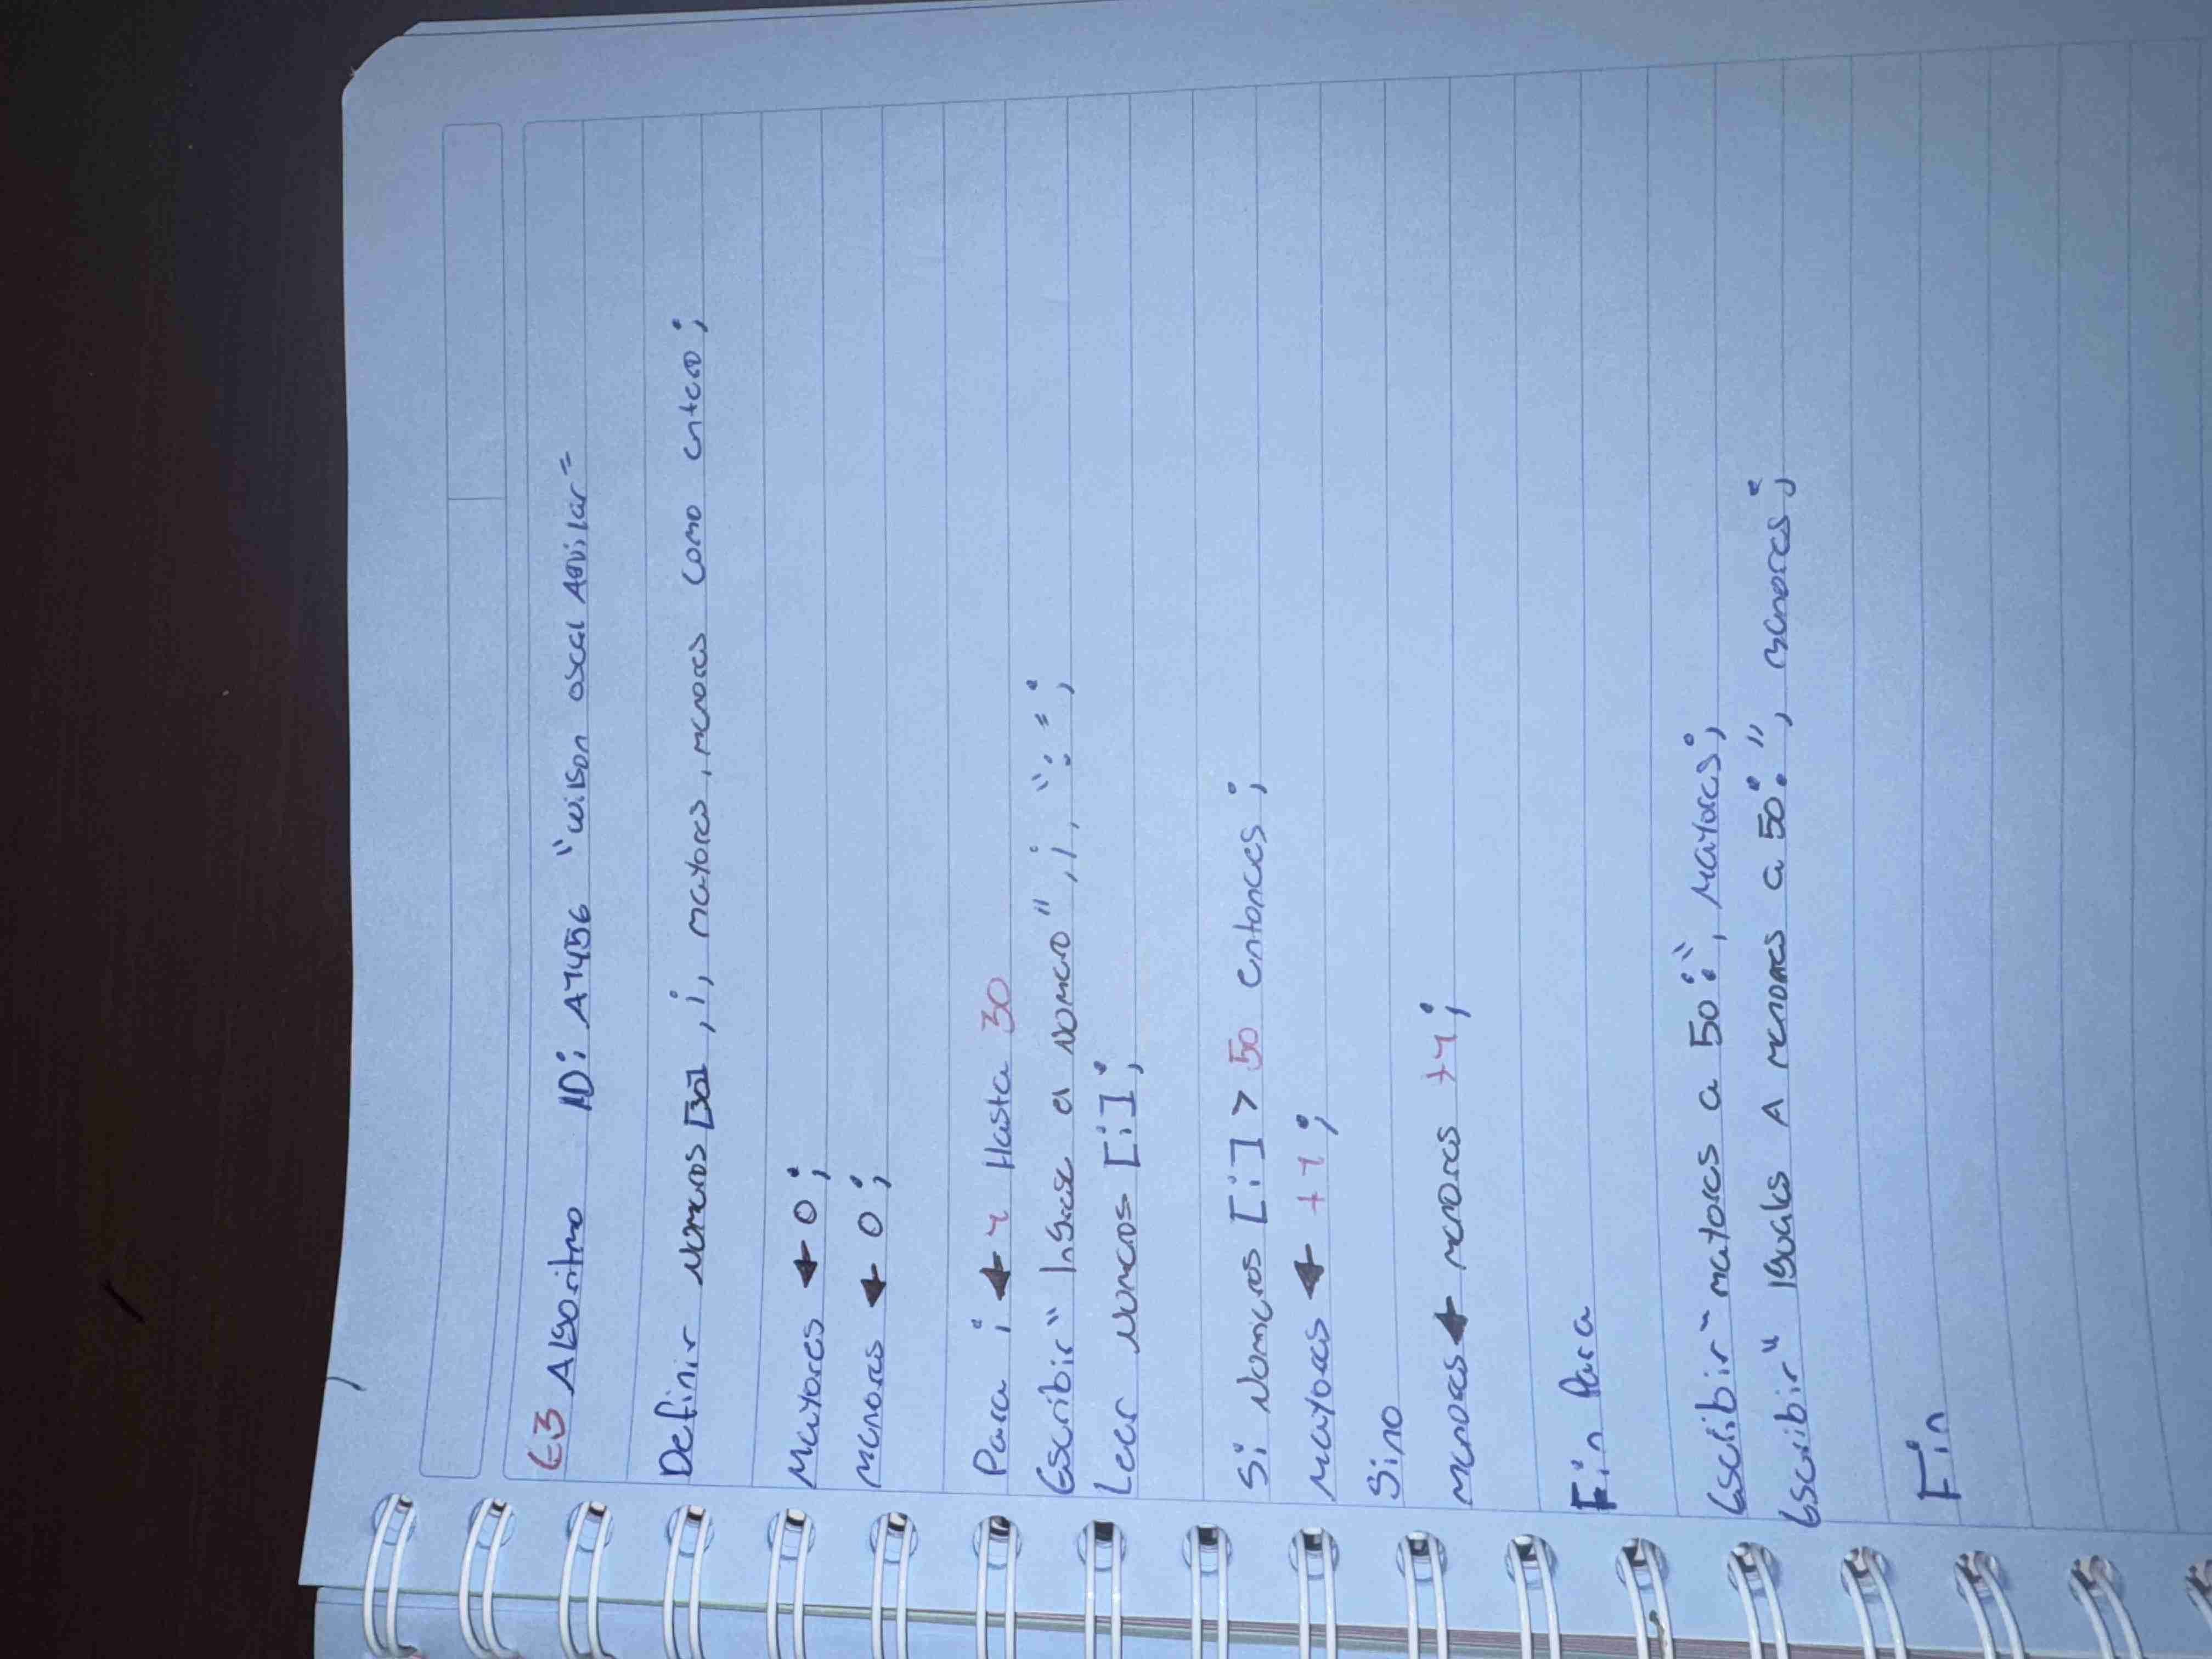 E3 Algoritmo ID: A7456 "wilson oscal Aguilar"
Definir Numeros [30], i, mayores, menores como entero;
Mayores ← 0;
Menores ← 0;
Para i ← 1 Hasta 30
Escribir "Ingrese el numero", i, ":";
Leer Numeros [i];
Si Numeros [i] > 50 entonces;
Mayores ← +1;
Sino
menores ← menores +1;
Fin Para
Escribir "mayores a 50:", Mayores;
Escribir "Iguales A menores a 50:", menores;
Fin